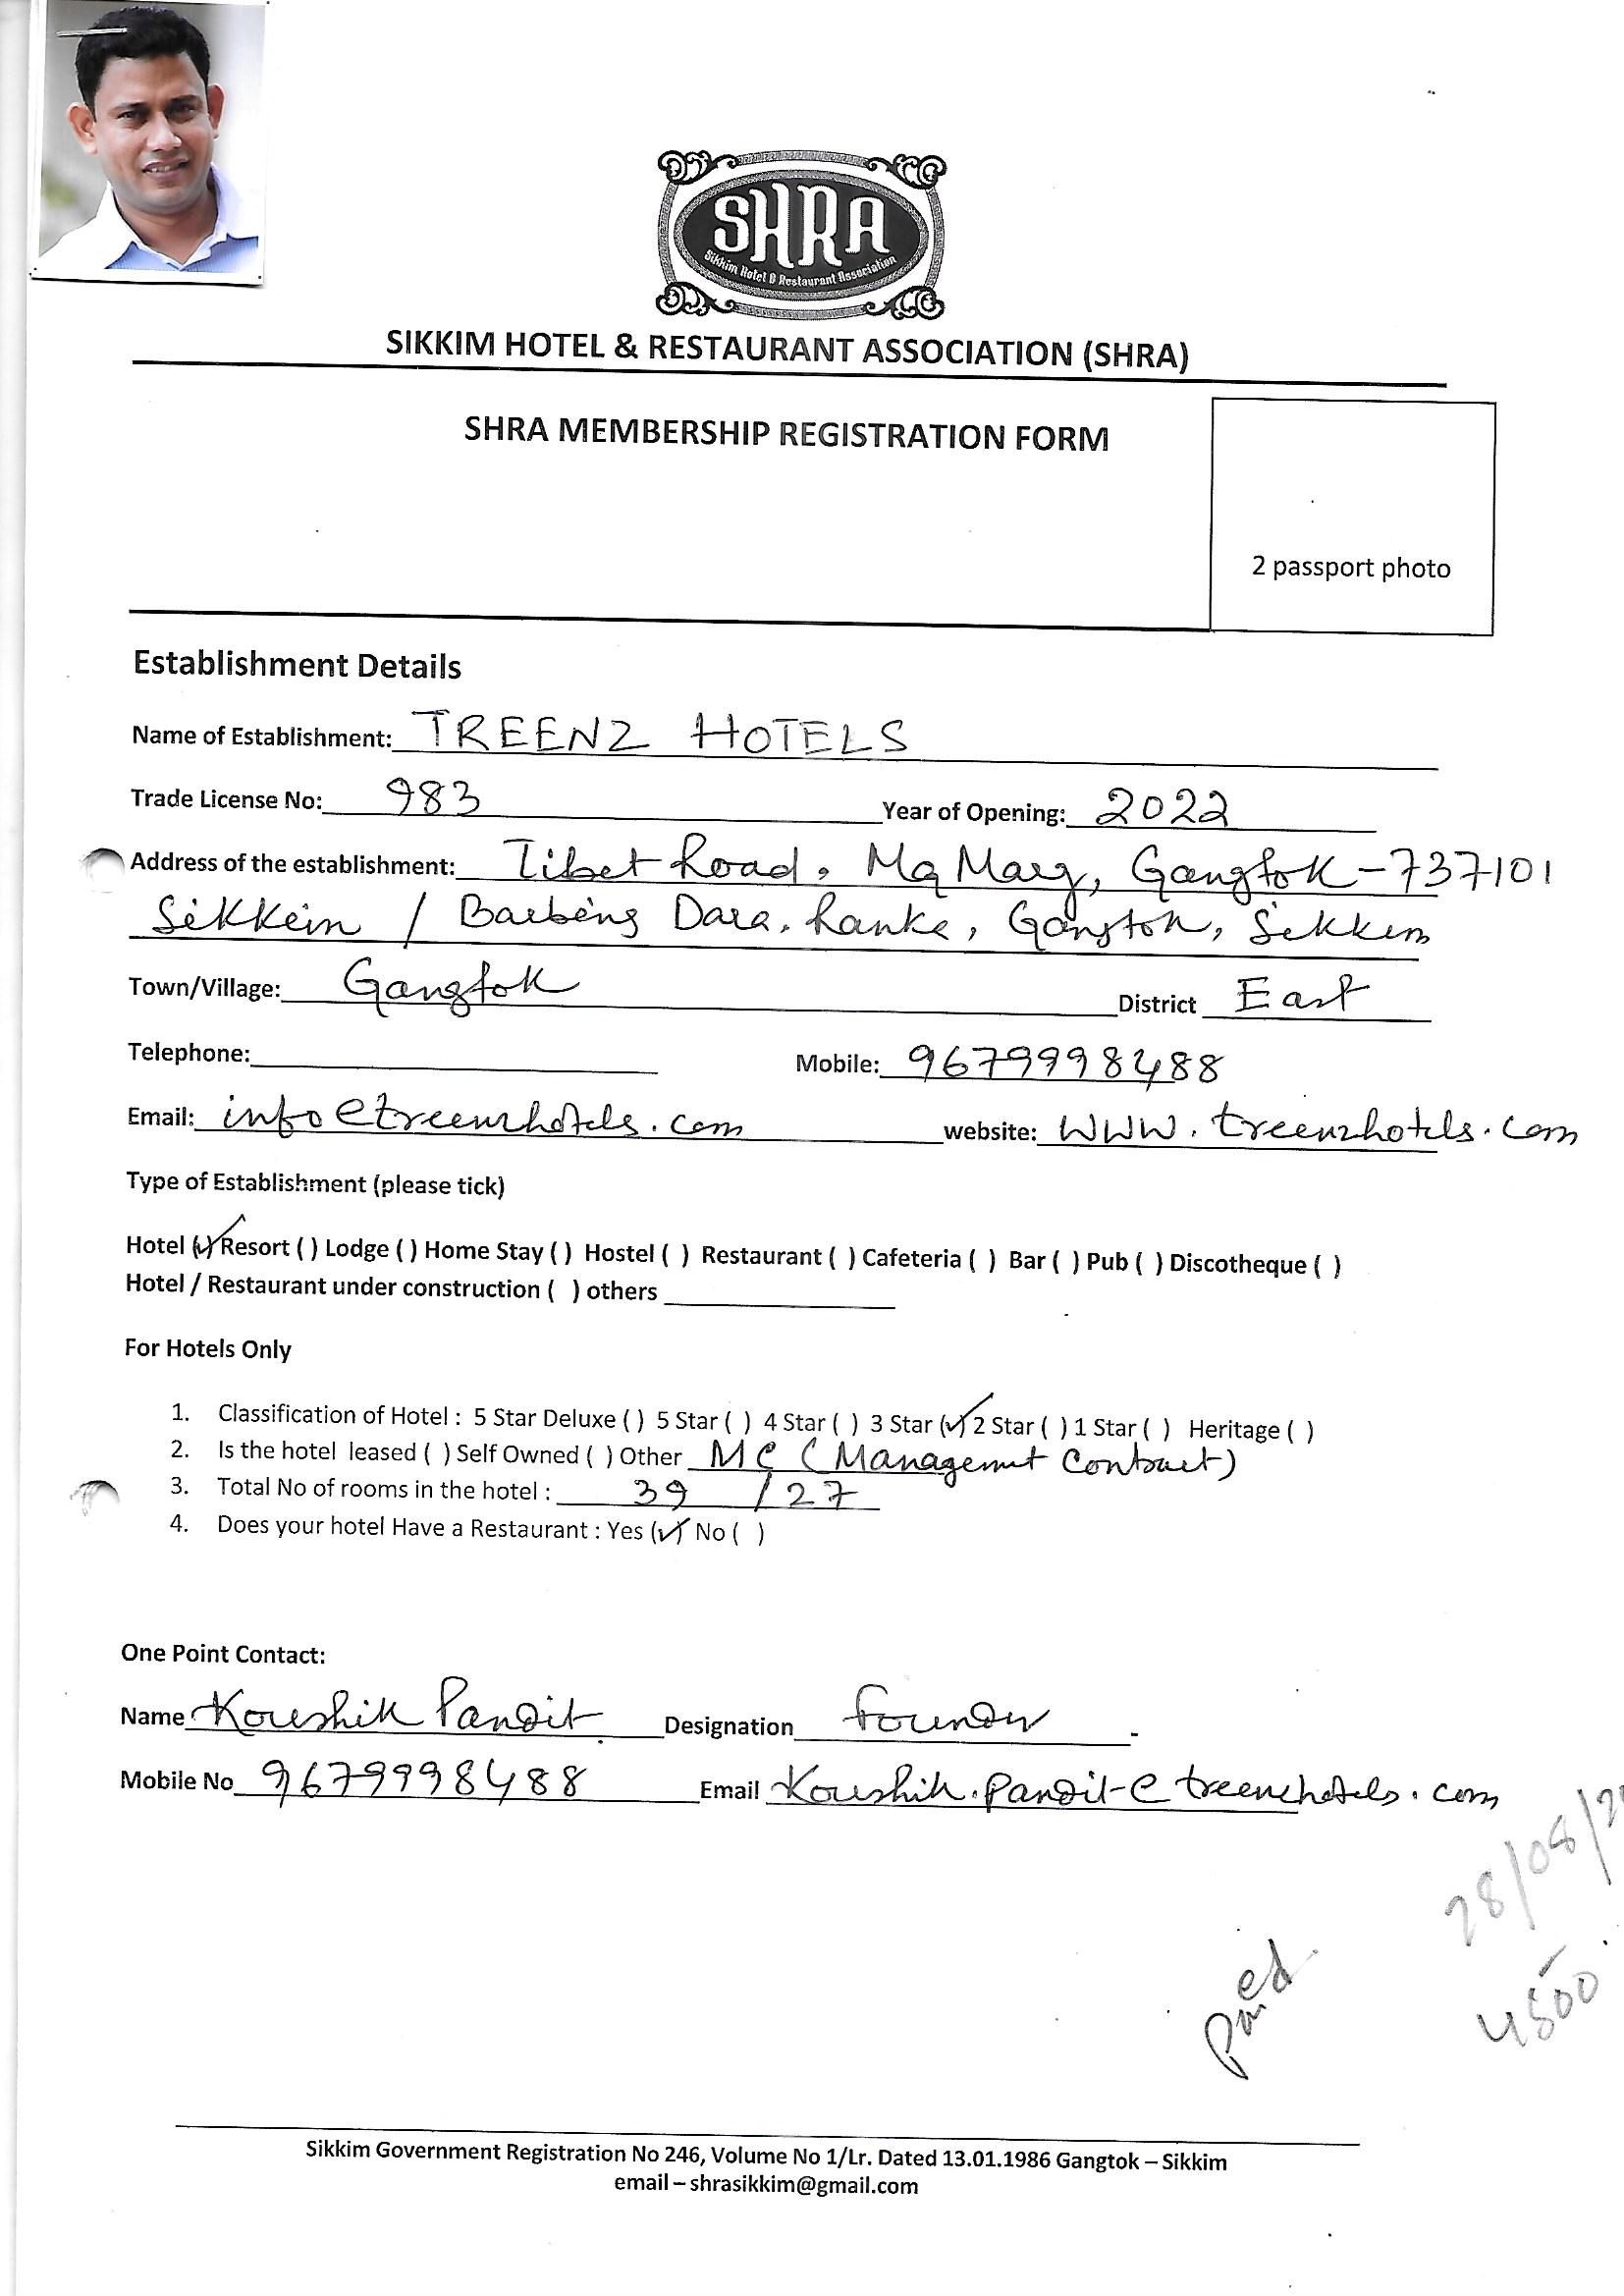 SHRA
Sikkim Hotel & Restaurant Association
SIKKIM HOTEL & RESTAURANT ASSOCIATION (SHRA)
SHRA MEMBERSHIP REGISTRATION FORM
2 passport photo
Establishment Details
Name of Establishment: TREENZ HOTELS
Trade License No: 983 Year of Opening: 2022
Address of the establishment: Tibet Road, MG Marg, Gangtok-737101
Sikkim / Barbing Dara, Ranka, Gangtok, Sikkim
Town/Village: Gangtok District East
Telephone: Mobile: 9679998488
Email: info@treenzhotels.com website: WWW.treenzhotels.com
Type of Establishment (please tick)
Hotel (✓) Resort ( ) Lodge ( ) Home Stay ( ) Hostel ( ) Restaurant ( ) Cafeteria ( ) Bar ( ) Pub ( ) Discotheque ( )
Hotel / Restaurant under construction ( ) others
For Hotels Only
1. Classification of Hotel : 5 Star Deluxe ( ) 5 Star ( ) 4 Star ( ) 3 Star (✓) 2 Star ( ) 1 Star ( ) Heritage ( )
2. Is the hotel leased ( ) Self Owned ( ) Other MC (Management Contract)
3. Total No of rooms in the hotel : 39 / 27
4. Does your hotel Have a Restaurant : Yes (✓) No ( )
One Point Contact:
Name Koushik Pandit Designation Founder
Mobile No 9679998488 Email Koushik.pandit@treenzhotels.com
28/08/2
Paid
4500
Sikkim Government Registration No 246, Volume No 1/Lr. Dated 13.01.1986 Gangtok – Sikkim
email – shrasikkim@gmail.com